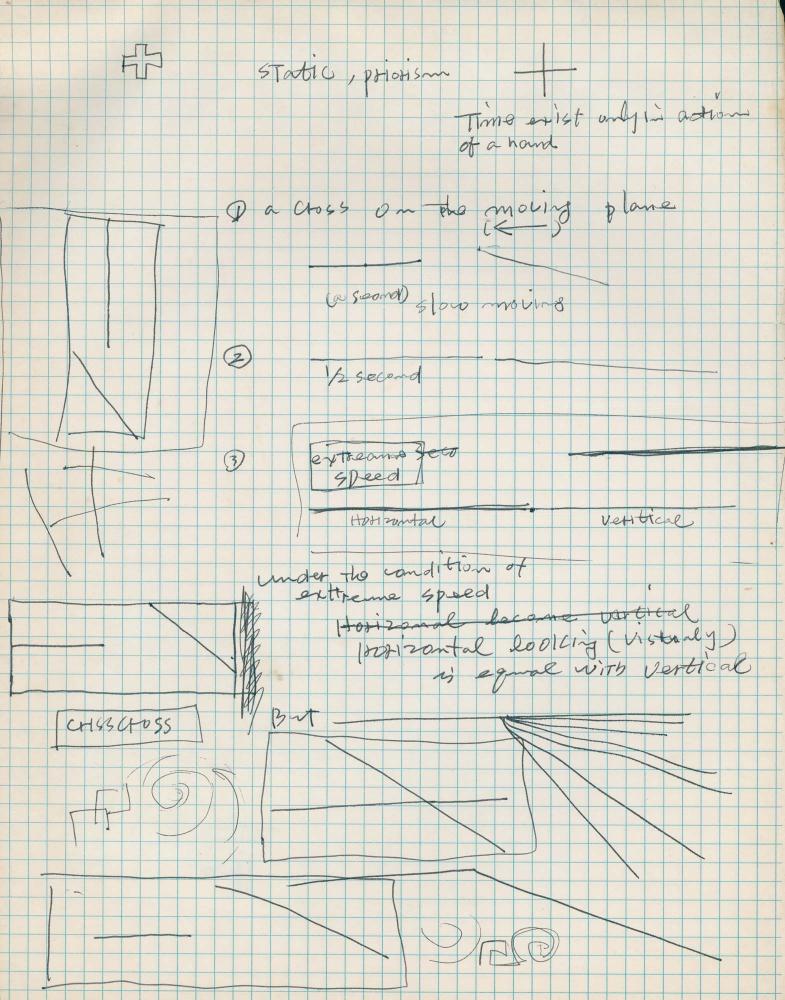 static, priorism
Time exist only in action
of a hand
① a cross on the moving plane
(a second) slow moving
②
1/2 second
③
extreame seco
speed
Horizontal veritical
under the condition of
exttreme speed
Horizonal become vertical
Horizontal looking (visualy)
is equal with vertical
CRISSCROSS
But